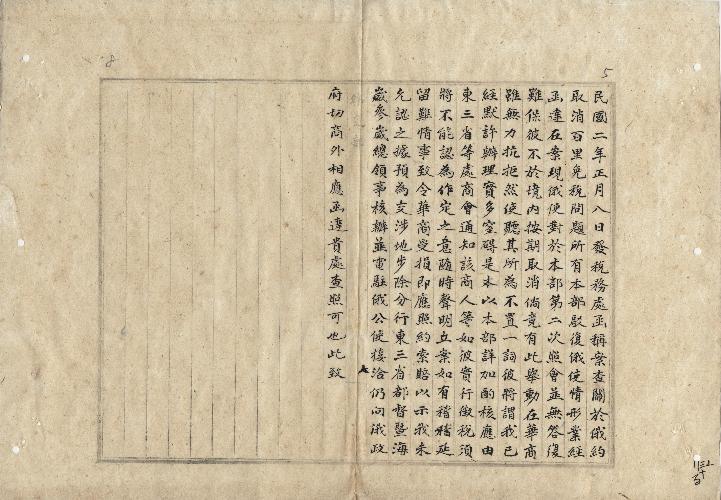 5
民國二年正月八日發稅務處函稱案查關於俄約
取消百里免稅問題所有本部駁復俄使情形業經
函達在案現俄使對於本部第二次照會並無答復
難保彼不於境內按期取消倘竟有此舉動在華商
雖無力抗拒然使聽其所為不置一詞彼將謂我已
經默許辦理實多窒碍是本以本部詳加酌核應由
東三省等處商會通知該商人等如彼實行徵稅須
將不能認為作定之意隨時聲明立案如有稽延
留難情事致令華商受損即應照約索賠以示我未
允認之據預為交涉地步除分行東三省都督暨海
歲參崴總領事核辦並電駐俄公使接洽仍向俄政
府切商外相應函達貴處查照可也此致
8